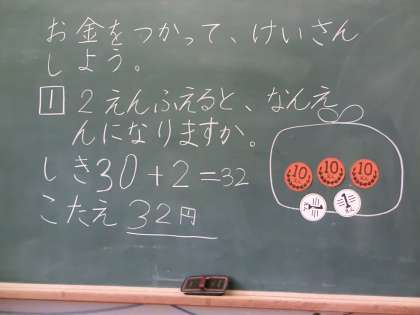 お金をつかって、けいさん
しよう。
1 2えんふえると、なんえ
んになりますか。
しき30+2=32
こたえ 32円
10 10 10
1 1